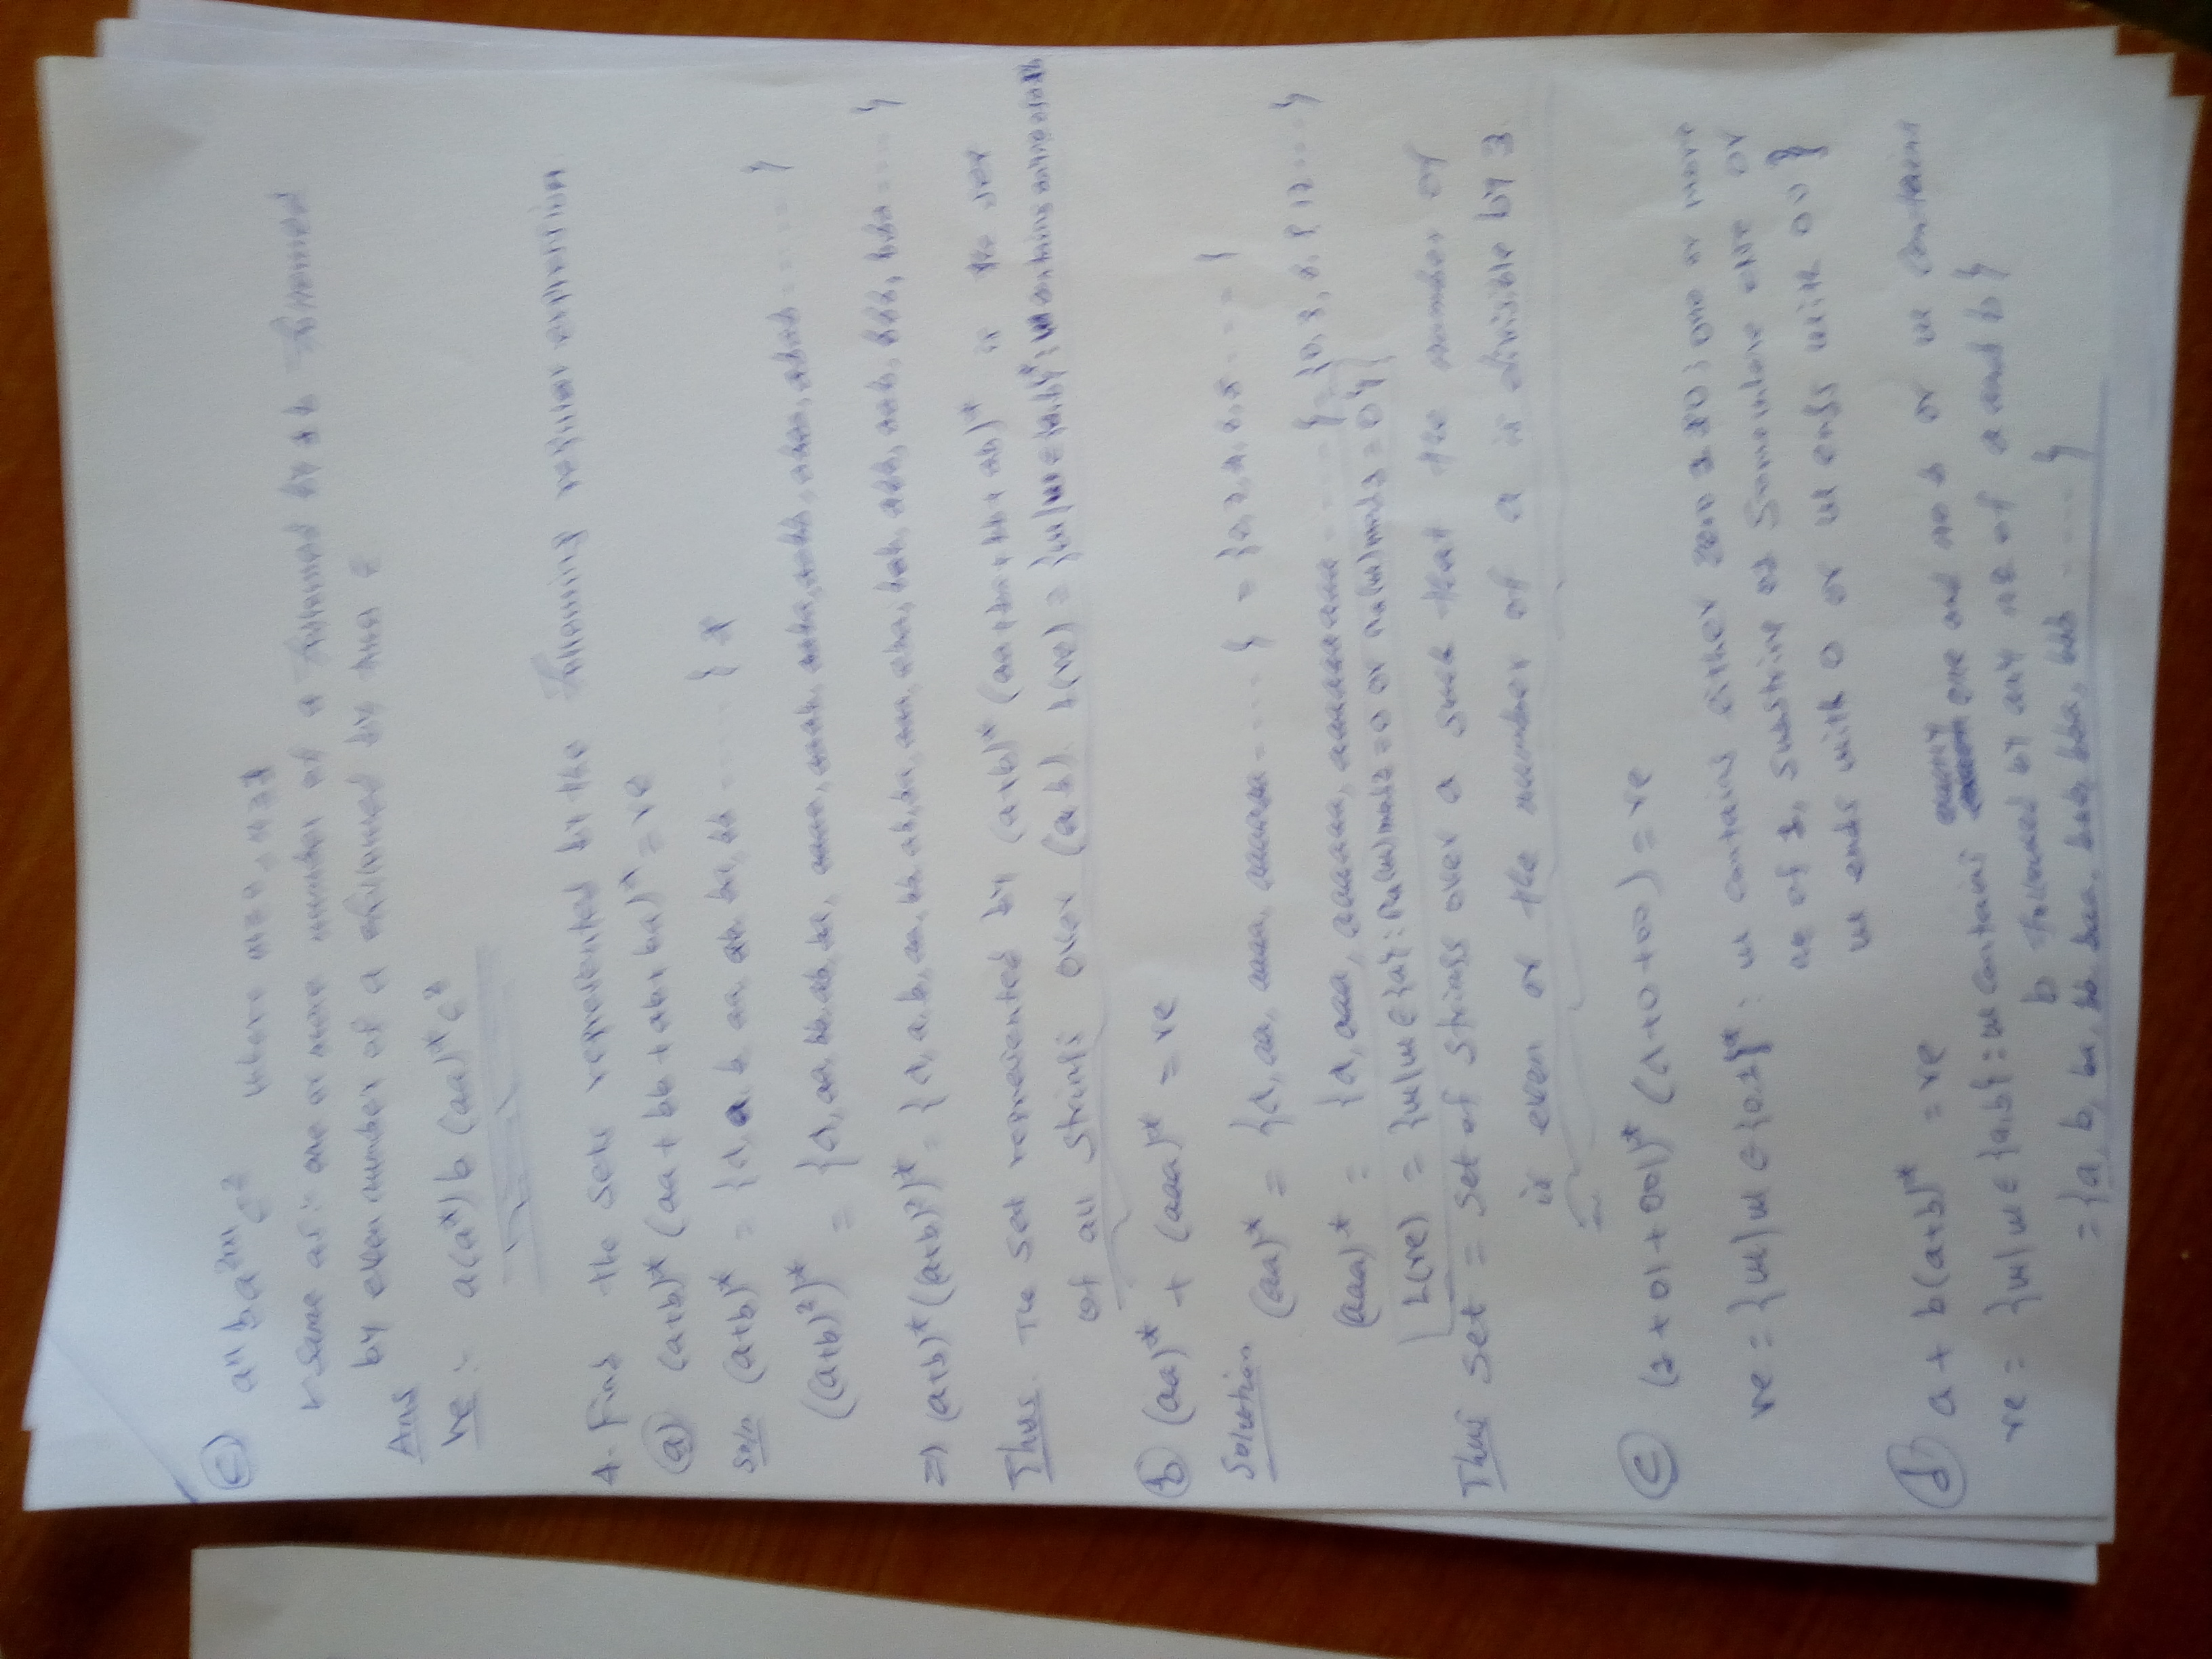 (c) aⁿ b a²ᵐ c² where m≥0, n≥1
Same as: one or more number of a followed by 1 b followed
by even number of a followed by two c
Ans
re: a(a*) b (aa)* c²
4. Find the sets represented by the following regular expression
(a) (a+b)* (aa + bb + ab + ba)* = re
Soln (a+b)* = {λ, a, b, aa, ab, ba, bb ..... }
((a+b)²)* = {λ, aa, bb, ab, ba, aaaa, aaab, aaba, aabb, abaa, abab ..... }
=> (a+b)*((a+b)²)* = {λ, a, b, aa, bb, ab, ba, aaa, aba, bab, abb, aab, bbb, bba .... }
Thus. The set represented by (a+b)* (aa+ba+bb+ab)* is the set
of all strings over (a,b). L(re) = {w/w ∈ {a,b}* : w contains
(b) (aa)* + (aaa)* = re
Solution
(aa)* = {λ, aa, aaaa, aaaaaa ..... } = {0, 2, 4, 6, 8 .... }
(aaa)* = {λ, aaa, aaaaaa, aaaaaaaaa ..... } = {0, 3, 6, 9, 12 .... }
L(re) = {w/w ∈ {a} : na(w) mod 2 = 0 or na(w) mod 3 = 0}
Thus set = set of strings over a such that the number of
is even or the number of a is divisible by 3
(c) (1 + 01 + 001)* (λ+0+00) = re
re = {w/w ∈ {0,1}* : w contains either zero one or more
of 1, substring somewhere else or
w ends with 0 or w ends with 00}
(d) a + b(a+b)* = re
re = {w/w ∈ {a,b} : w contains exactly one and no b or w contains
b followed by any no of a and b}
= {a, b, ba, bb, baa, bab, bba, bbb ..... }